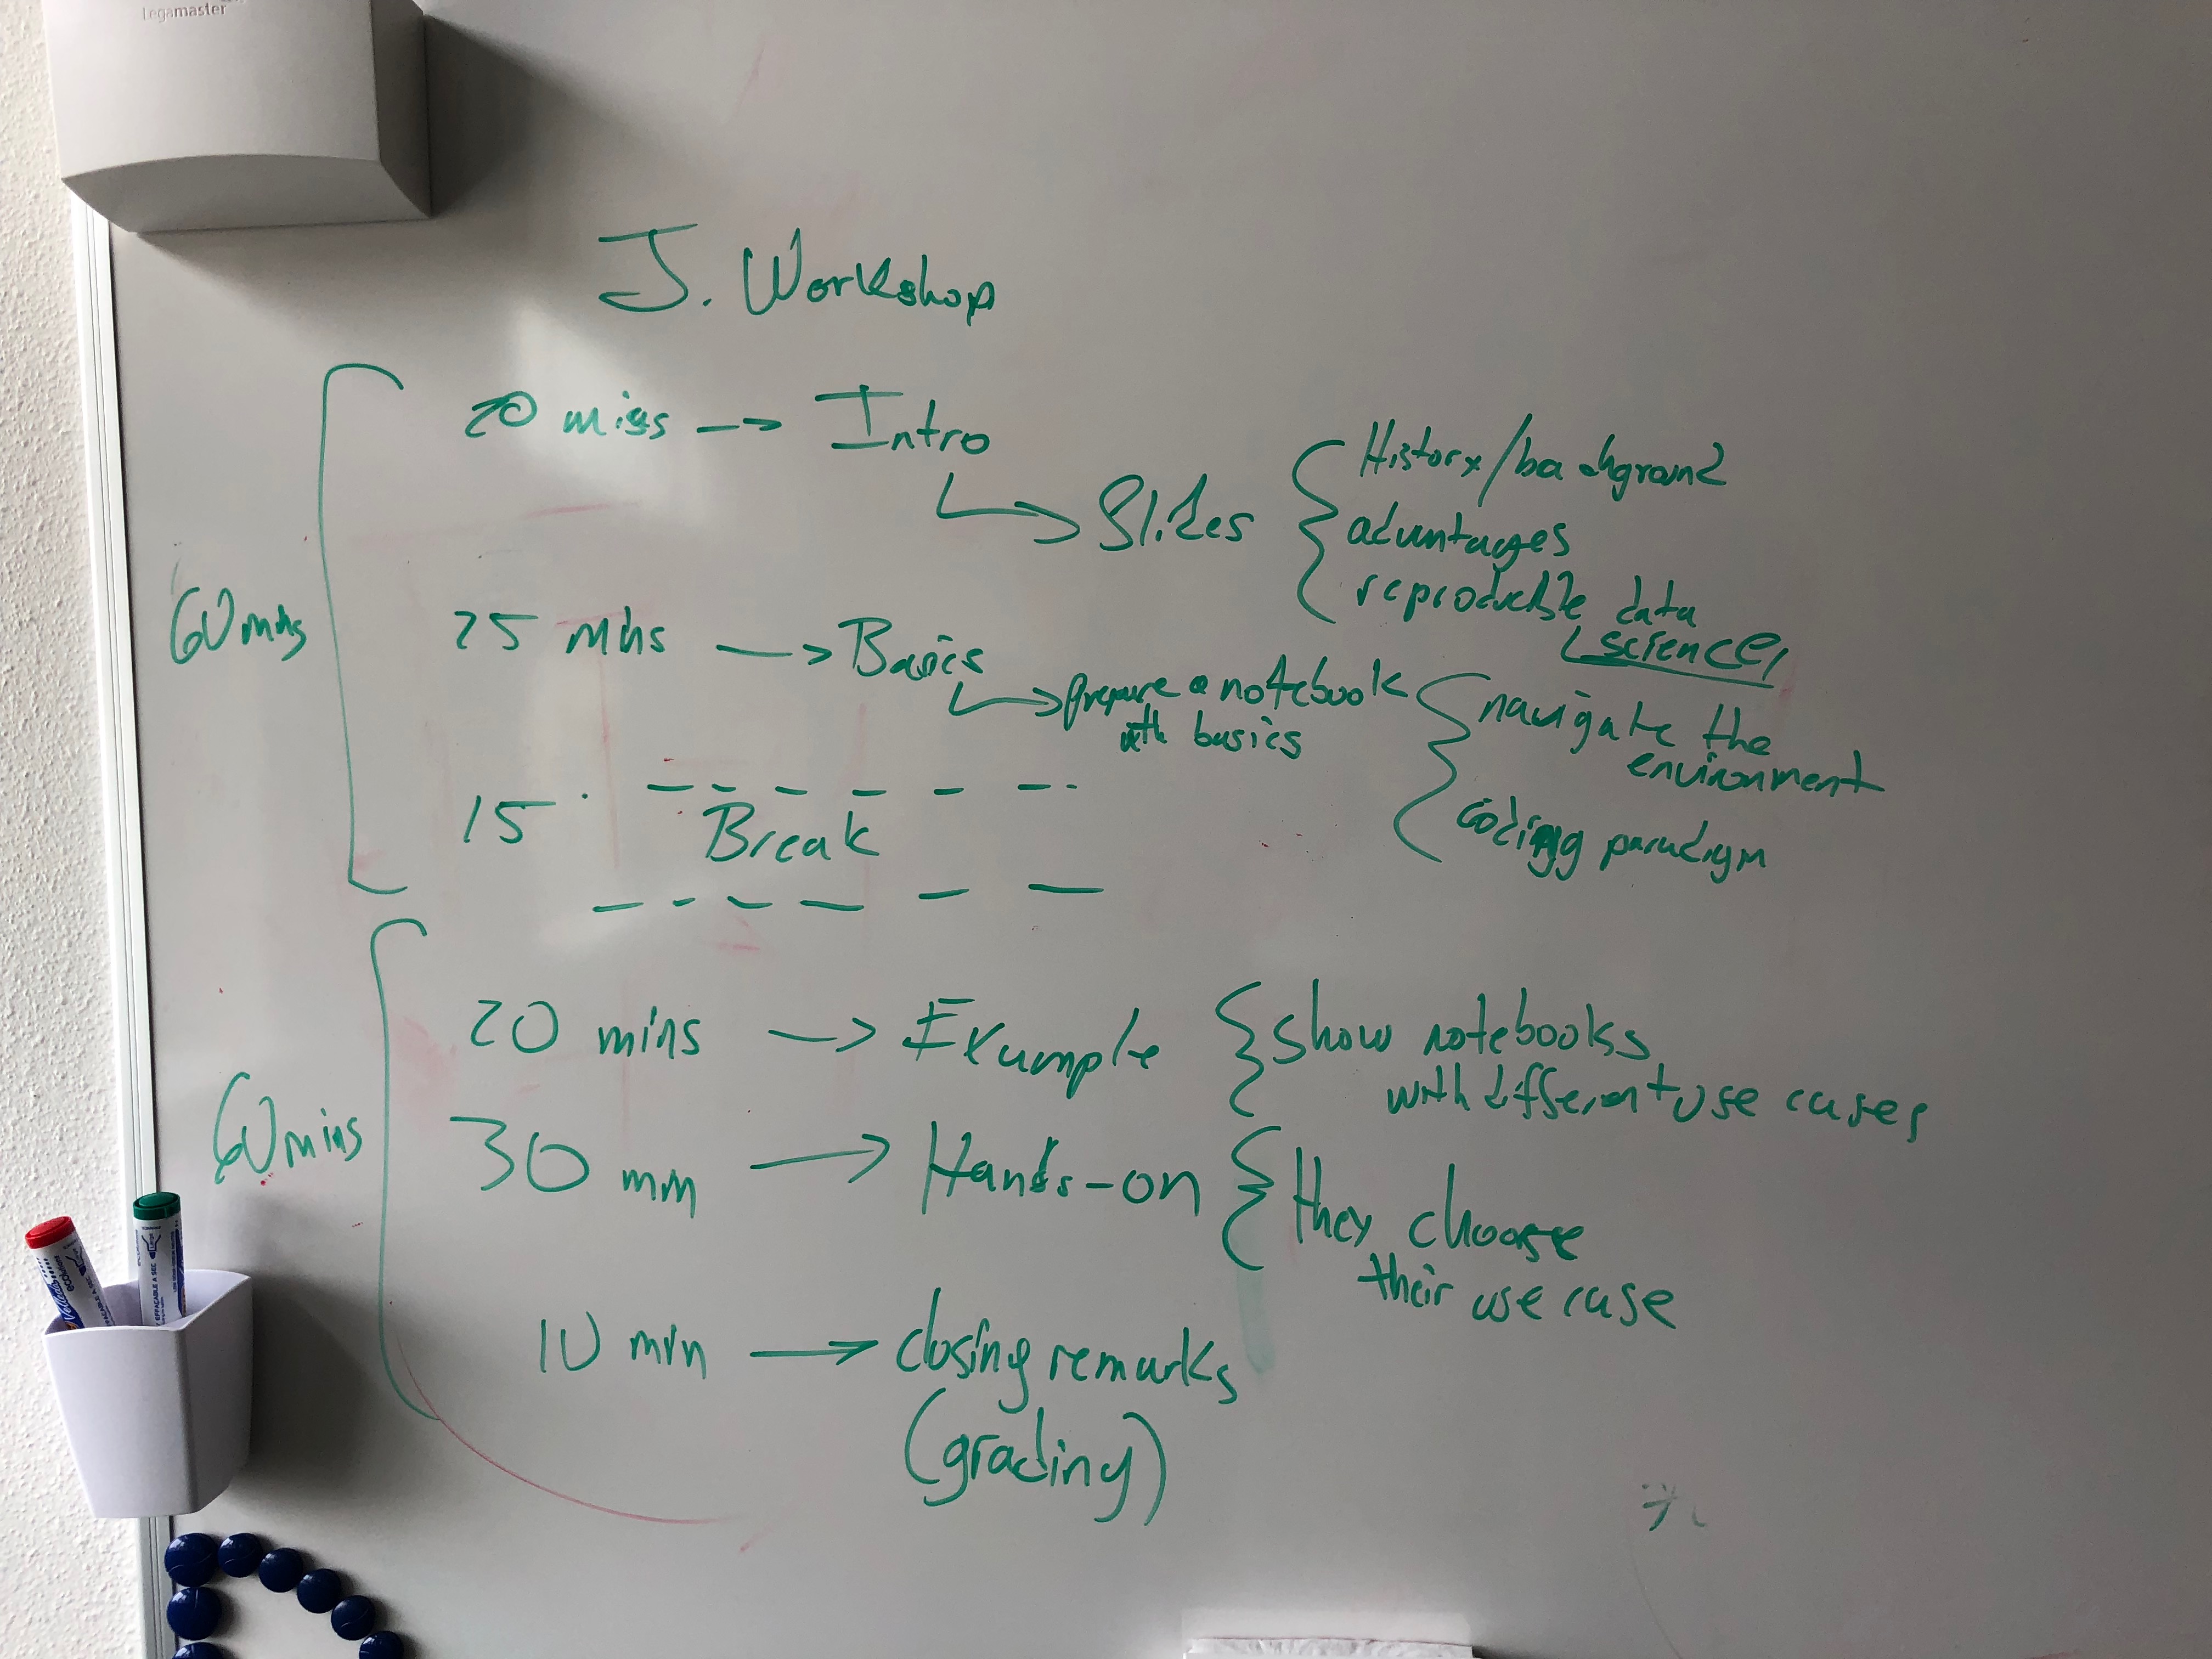 Legamaster
J. Workshop
20 mins --> Intro
Slides
History/background
advantages
reproducible data
science
60 mins
25 mins --> Basics
prepare a notebook
with basics
navigate the
environment
coding paradigm
15
Break
60 mins
20 mins --> Example
show notebooks
with different use cases
30 min --> Hands-on
they choose
their use case
10 min --> closing remarks
(grading)